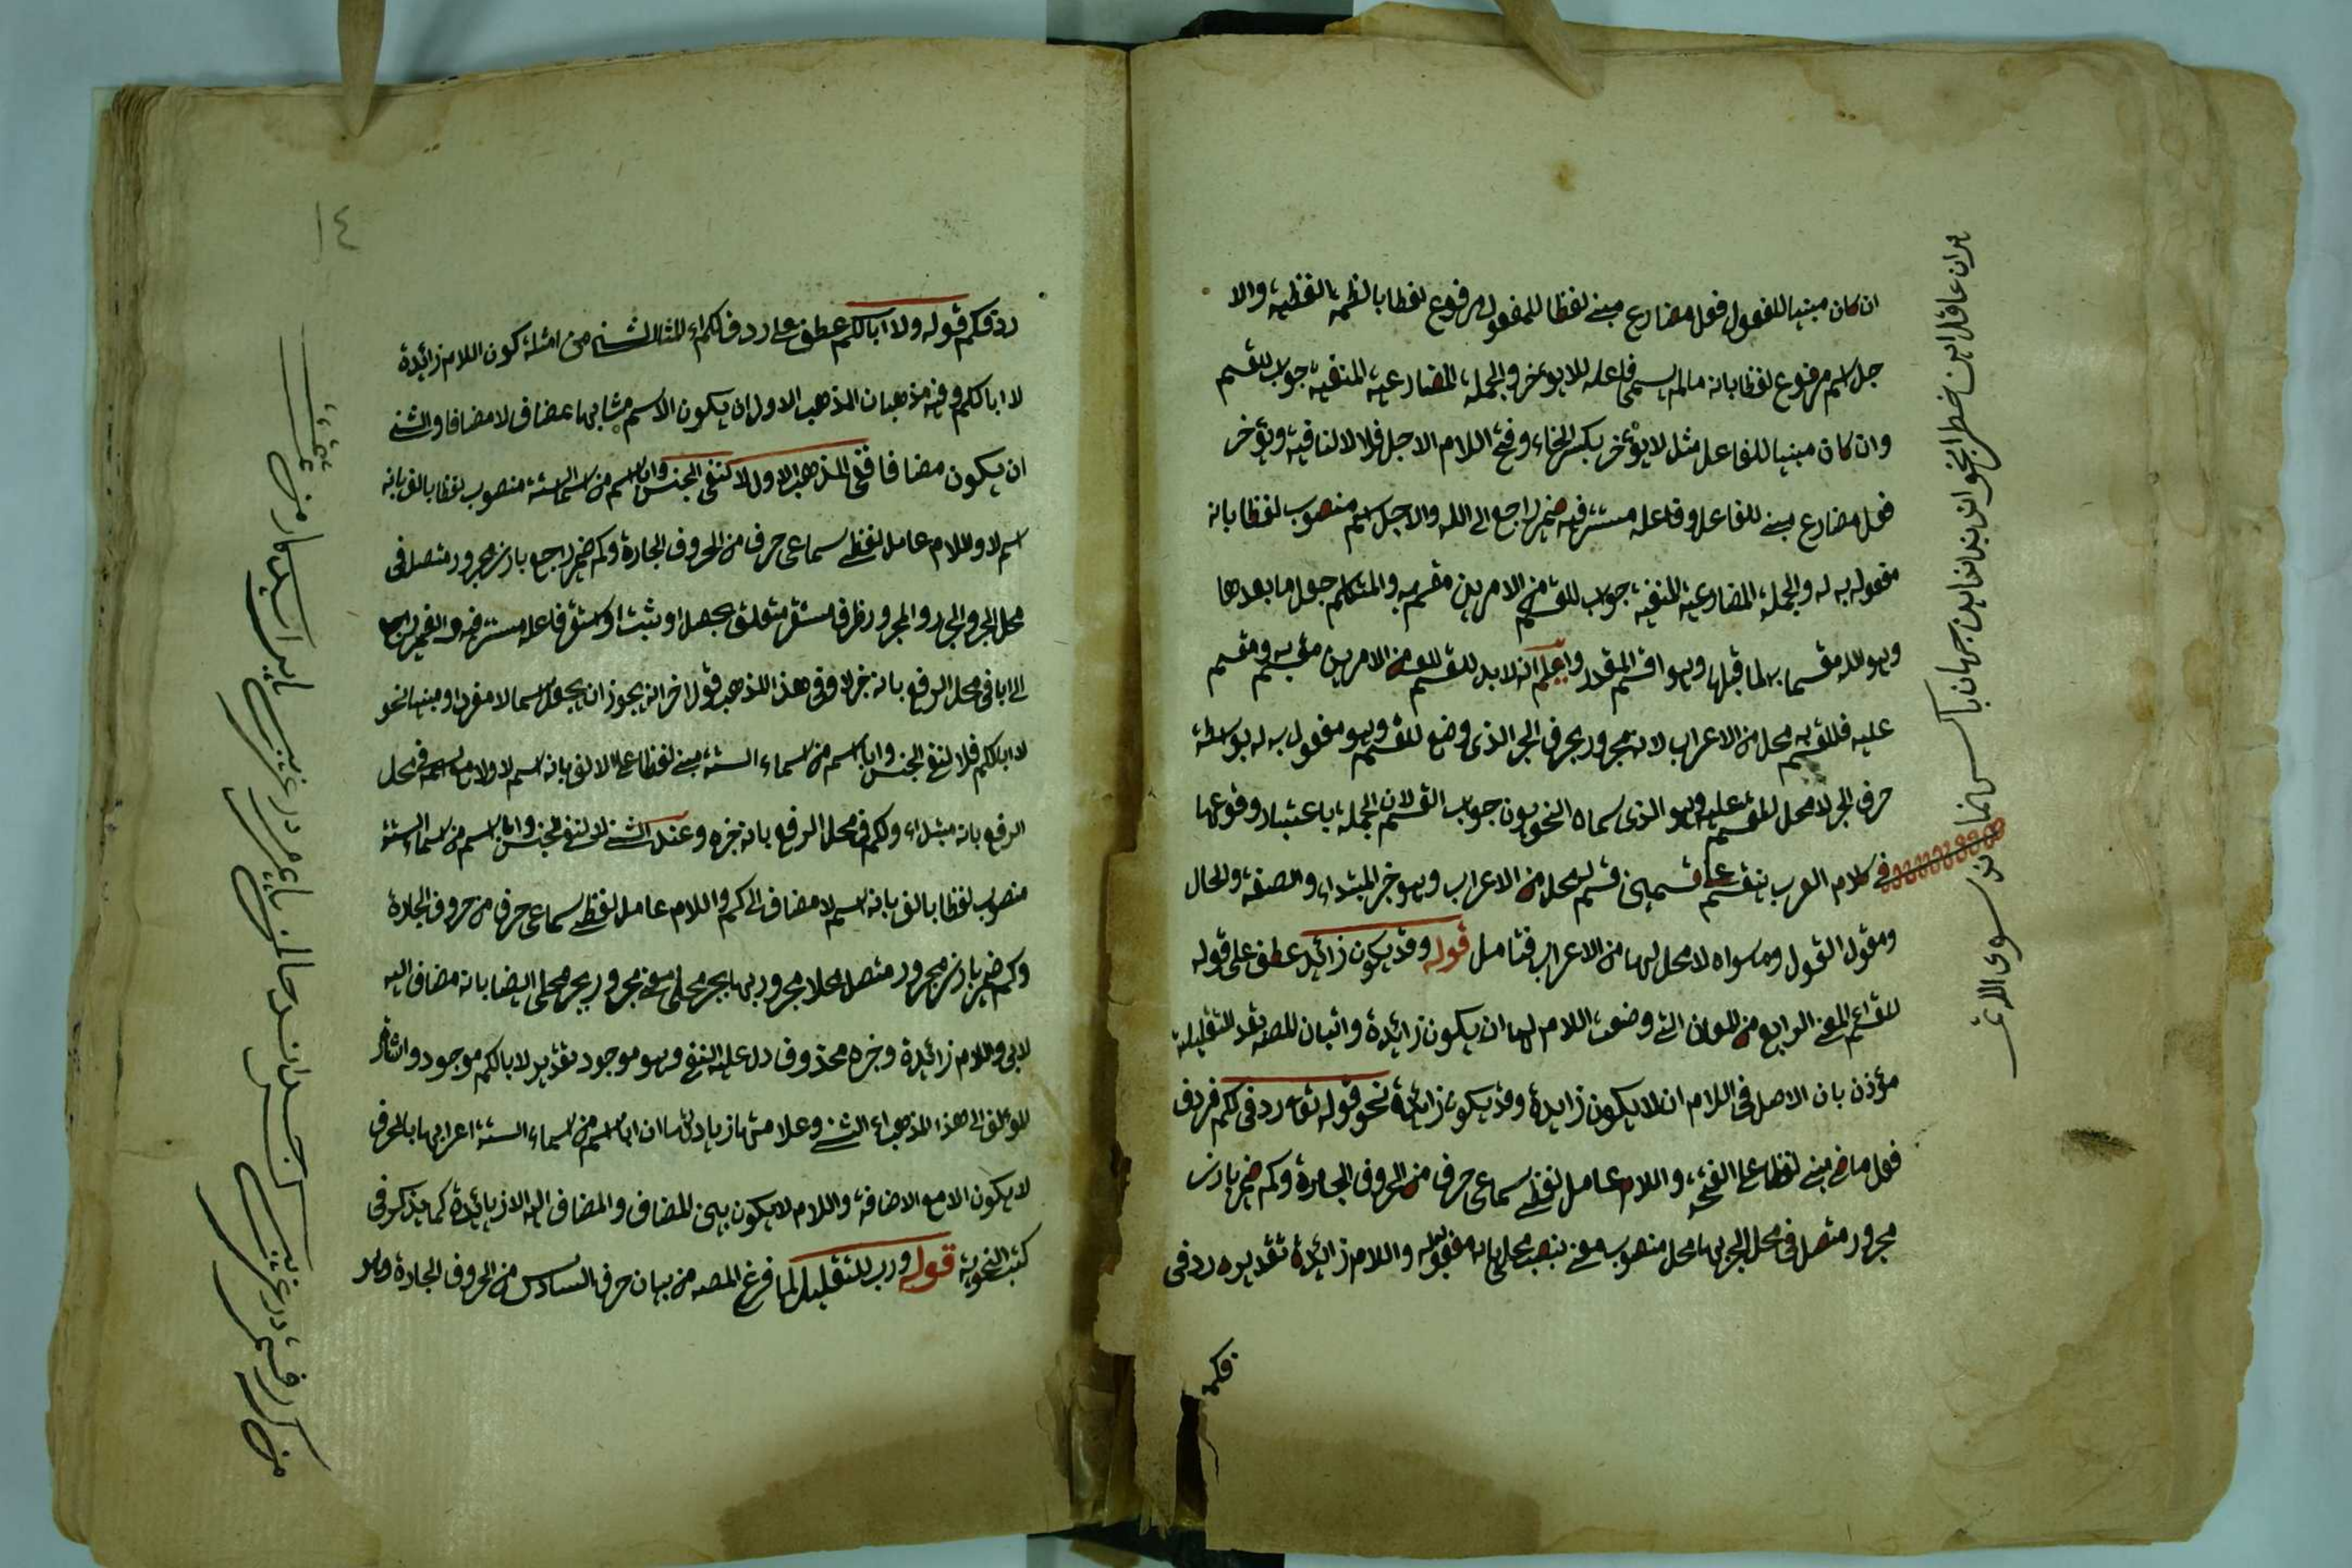 ان كان مبنيا للمفعول فعل مضارع مبنى لفظا للمفعول مرفوع لفظا بالضمة اللفظية والا
جل اسم مرفوع لفظا بانه مالم يسمى فاعله للايؤخر والجملة المضارعية المنفية جواب للقسم
وان كان مبنيا للفاعل مثل لا يؤخر بكسر الخاء وفتح اللام الاجل فلا لا لنافية ويؤخر
فعل مضارع مبنى للفاعل وفاعله مستتر فيه ضمير راجع الى الله والاجل اسم منصوب لفظا بانه
مفعول به له والجملة المضارعية المنفية جواب للقسم من الامرين مقسم به والمتكلم جعل ما بعدها
وهو الله مقسما بها لما قبلها وهو اقسم المقدر واعلم انه لا بد للقسم من الامرين مقسم به ومقسم
عليه فللمقسم به محل من الاعراب لانه مجرور بحرف الجر الذى وضع للقسم وهو مفعول به له بواسطة
حرف الجر لا محل للمقسم عليه وهو الذى سماه النحويون جواب القسم لان الجملة باعتبار وقوعها
فى كلام العرب ينقسم على قسمين قسم له محل من الاعراب وهو خبر المبتداء والصفة والحال
ومقول القول وما سواه لا محل لها من الاعراب فتامل قوله وقد يكون زائد عطف على قوله
للقسم المعنى الرابع من المعان التى وضعت اللام لها ان يكون زائدة واتيان المص بقد للتقليلة
مؤذن بان الاصل فى اللام ان لا يكون زايدة وقد يكون زائدة نحو قوله تع ردف لكم فردف
فعل ماض مبنى لفظا على الفتحة واللام عامل لفظى سماعى حرف من الحروف الجارة وكم ضمير بارز
مجرور متصل فى محل الجر بها محل منصوب معنى بنصب محلى بانه مفعوله واللام زائدة تقديره ردفى
فكم
بدان عاقل اين خط را نخوانى بدان اين جهان با كس نماند سوى الله
١٤
ردفكم قوله ولا ابا لكم عطف على ردف لكم اى المثال الثانى من امثلة كون اللام زائدة
لا ابا لكم وفيه مذهبان المذهب الاول ان يكون الاسم مشابها بمضاف لا مضافا والثانى
ان يكون مضافا ففى المذهب الاول لا لنفى الجنس وابا اسم من اسماء الستة منصوب لفظا بالف بانه
اسم لا واللام عامل لفظى سماعى حرف من الحروف الجارة وكم ضمير راجع بارز مجرور متصل فى
محل الجر والجار والمجرور ظرف مستقر متعلق بحصل او ثبت او استقر فاعله مستتر فيه والضمير راجع
الى ابا فى محل الرفع بانه خبر لا وفى هذا المذهب قول اخر انه يجوز ان يجعل اسم لا مفردا ومبنيا نحو
لا ابا لكم فلا لنفى الجنس وابا اسم من اسماء الستة مبنى لفظا على الالف بانه اسم لا ولا مع اسمه فى محل
الرفع بانه مبتداء ولكم فى محل الرفع بانه خبره وعند الثانى لا لنفى الجنس وابا اسم من اسماء الستة
منصوب لفظا بالف بانه اسم لا مضاف الى كم واللام عامل لفظى سماعى حرف من حروف الجارة
وكم ضمير بارز مجرور متصل محلا مجرور بها بجر محلى معنى مجرور بجر محلى ايضا بانه مضاف اليه
لابى واللام زائدة وخبره محذوف دل عليه النفى وهو موجود تقديره لا ابا لكم موجود واشار
المؤلف الى هذا المذهب اى الثانى وعلامتها زيادتها ان ابا اسم من اسماء الستة اعرابها بالحرف
لا يكون الا مع الاضافة واللام لا يكون بين المضاف والمضاف اليه الا زيائدة كما يذكر فى
كتب النحوية قوله ورب للتقليل لما فرغ المصه من بيان حرف السادس من الحروف الجارة وهو